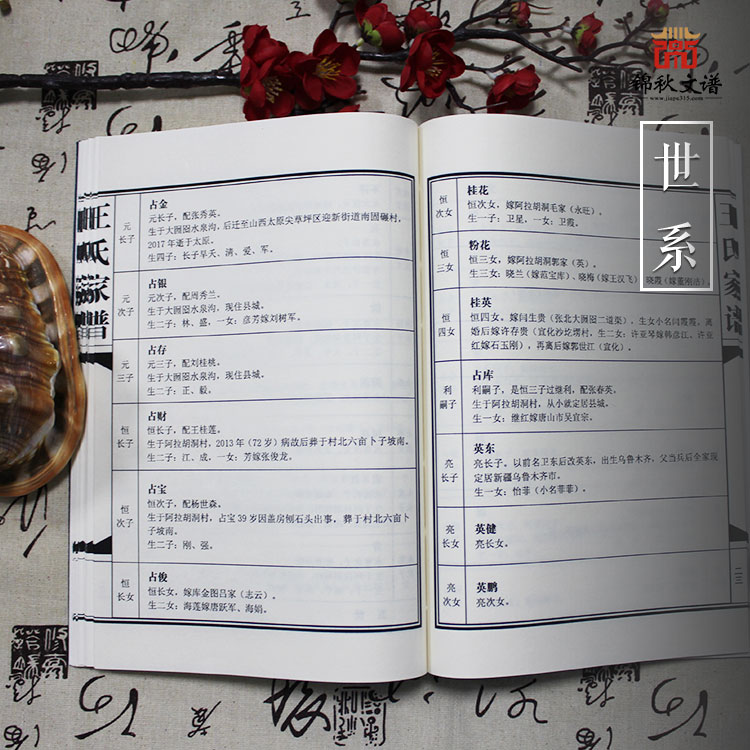 錦秋文谱
www.jiapu315.com
世系
王氏家譜
元长子
占金
元长子，配张秀英。
生于大囫囵水泉沟，后迁至山西太原尖草坪区迎新街道南固碾村，
2017年毫于太原。
生四子：长子早夭、清、爱、军。
元次子
占银
元次子，配周秀兰。
生于大囫囵水泉沟，现住县城。
生二子：林、盛，一女：彦芳嫁刘树军。
元三子
占存
元三子，配刘桂桃。
生于大囫囵水泉沟，现住县城。
生二子：正、毅。
恒长子
占财
恒长子，配王桂莲。
生于阿拉胡洞村，2013年（72岁）病故后葬于村北六亩卜子坡南。
生二子：江、成，一女：芳嫁张俊龙。
恒次子
占宝
恒次子，配杨世森。
生于阿拉胡洞村，占宝39岁因盖房刨石头出事，葬于村北六亩卜
子坡南。
生二子：刚、强。
恒长女
占俊
恒长女，嫁库金图吕家（志云）。
生二女：海莲嫁唐跃军、海娟。
恒次女
桂花
恒次女，嫁阿拉胡洞毛家（永旺）。
生一子：卫星，一女：卫霞。
恒三女
粉花
恒三女，嫁阿拉胡洞郭家（英）。
生三女：晓兰（嫁范宝库）、晓梅（嫁王汉飞）、晓霞（嫁董刚浩）。
恒四女
桂英
恒四女，嫁闫生贵（张北大囫囵二道渠），生女小名闫霞霞，离
婚后嫁许存贵（宣化沙圪塄村，生二女：许亚琴嫁韩彦江、许亚
红嫁石玉刚），再离后嫁郭世江（宣化）。
利嗣子
占库
利嗣子，是恒三子过继利，配张春英。
生于阿拉胡洞村，从小就定居县城。
生一女：继红嫁唐山市吴宜宗。
亮长子
英东
亮长子。以前名卫东后改英东，出生乌鲁木齐，父当兵后全家现
定居新疆乌鲁木齐市。
生一女：怡菲（小名菲菲）。
亮长女
英健
亮长女。
亮次女
英鹏
亮次女。
王氏家谱
二三